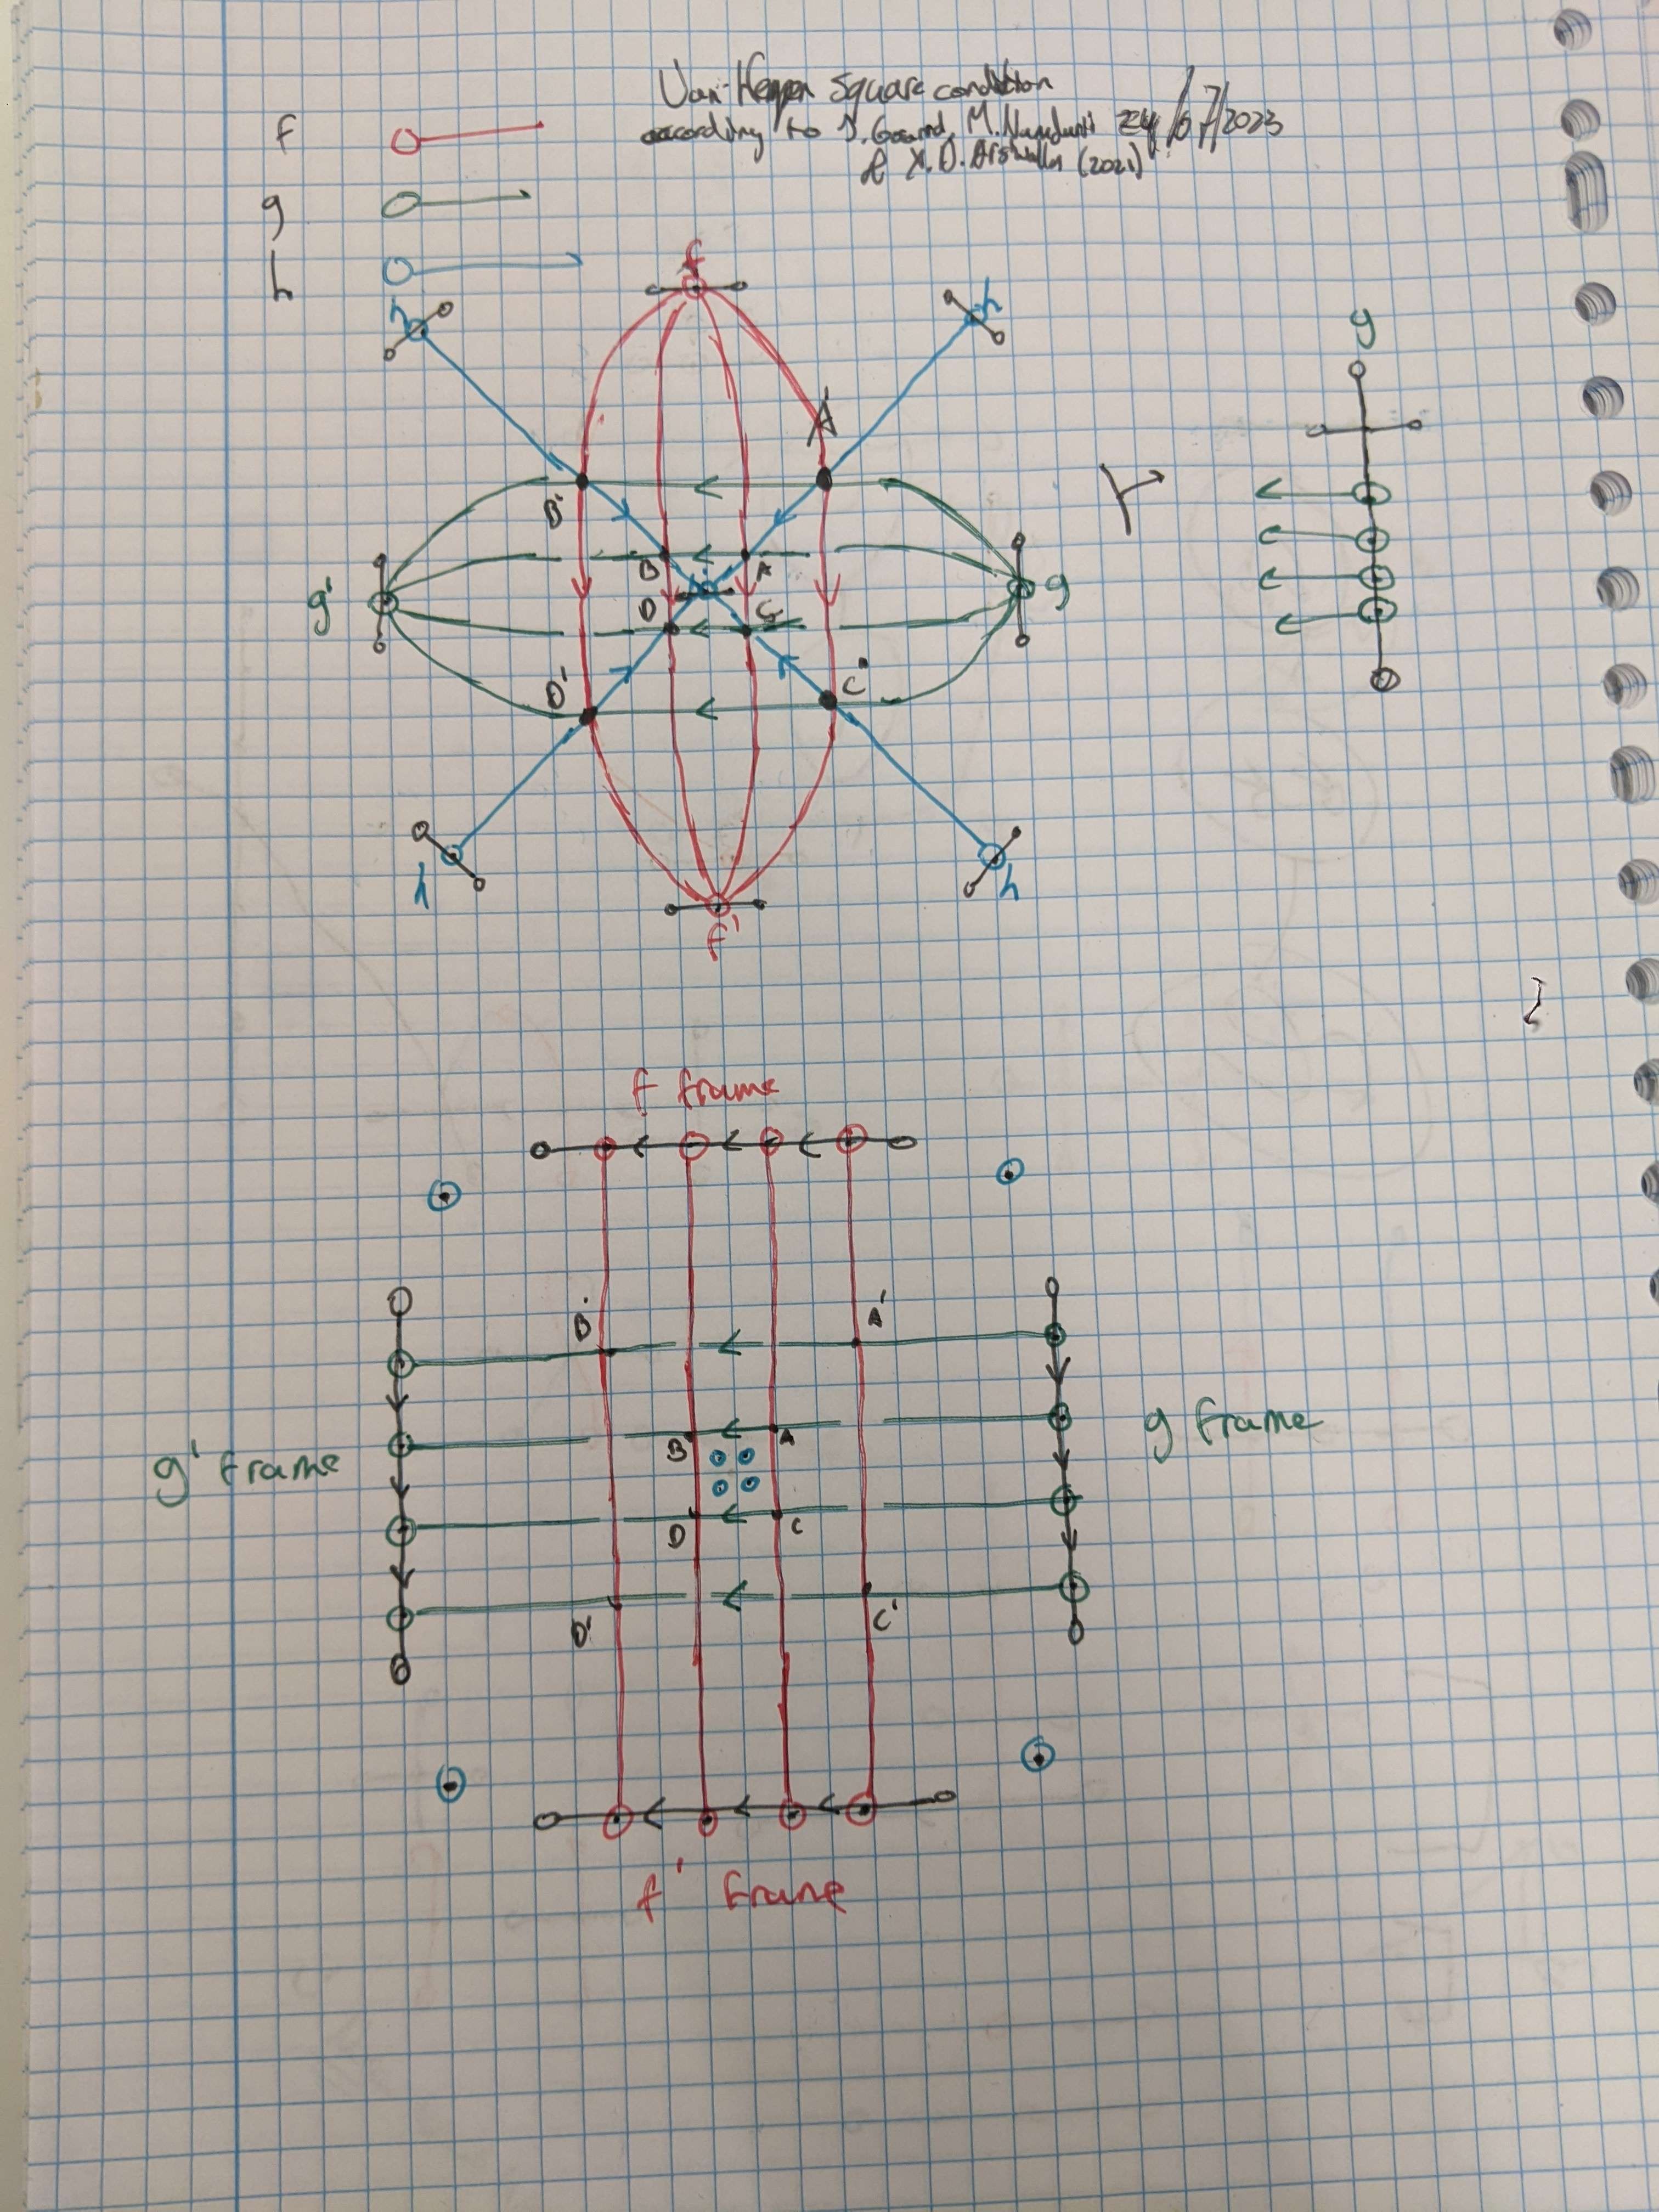 Van Kampen Square condition
according to J. Gorard, M. Namuduri 24/07/2023
& X.D. Arsiwalla (2021)
f
g
h
f
h
h
g
A'
B'
B
A
g'
D
C
g
D'
C'
h
h
f'
f frame
B'
A'
B
A
g frame
g' frame
D
C
D'
C'
f' frame